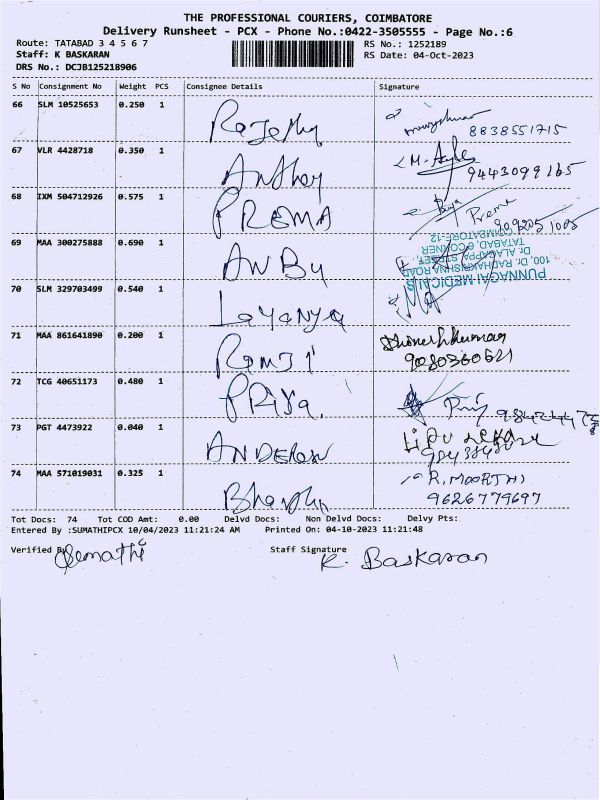 THE PROFESSIONAL COURIERS, COIMBATORE
Delivery Runsheet - PCX - Phone No.:0422-3505555 - Page No.:6
Route: TATABAD 3 4 5 6 7
RS No.: 1252189
Staff: K BASKARAN
RS Date: 04-Oct-2023
DRS No.: DCJB125218906
S No Consignment No Weight PCS Consignee Details Signature
66 SLM 10525653 0.250 1
8838551715
67 VLR 4428718 0.350 1 Anthoy
9443099165
68 IXM 504712926 0.575 1 PREMA Prema
69 MAA 300275888 0.690 1 ANBU
PUNNAGAI MEDICALS
100, Dr. RADHAKRISHNA ROAD
Dr. ALAGAPPA STREET,
TATABAD, 6 CORNER
COIMBATORE-12
70 SLM 329703499 0.540 1 Layanya
71 MAA 861641890 0.200 1 Ramji
9080360621
72 TCG 40651173 0.480 1 PRiya
73 PGT 4473922 0.040 1 ANDEREW
74 MAA 571019031 0.325 1 R. MOORTHI
9626779697
Tot Docs: 74 Tot COD Amt: 0.00 Delvd Docs: Non Delvd Docs: Delvy Pts:
Entered By :SUMATHIPCX 10/04/2023 11:21:24 AM Printed On: 04-10-2023 11:21:48
Verified By Sumathi Staff Signature K. Baskaran